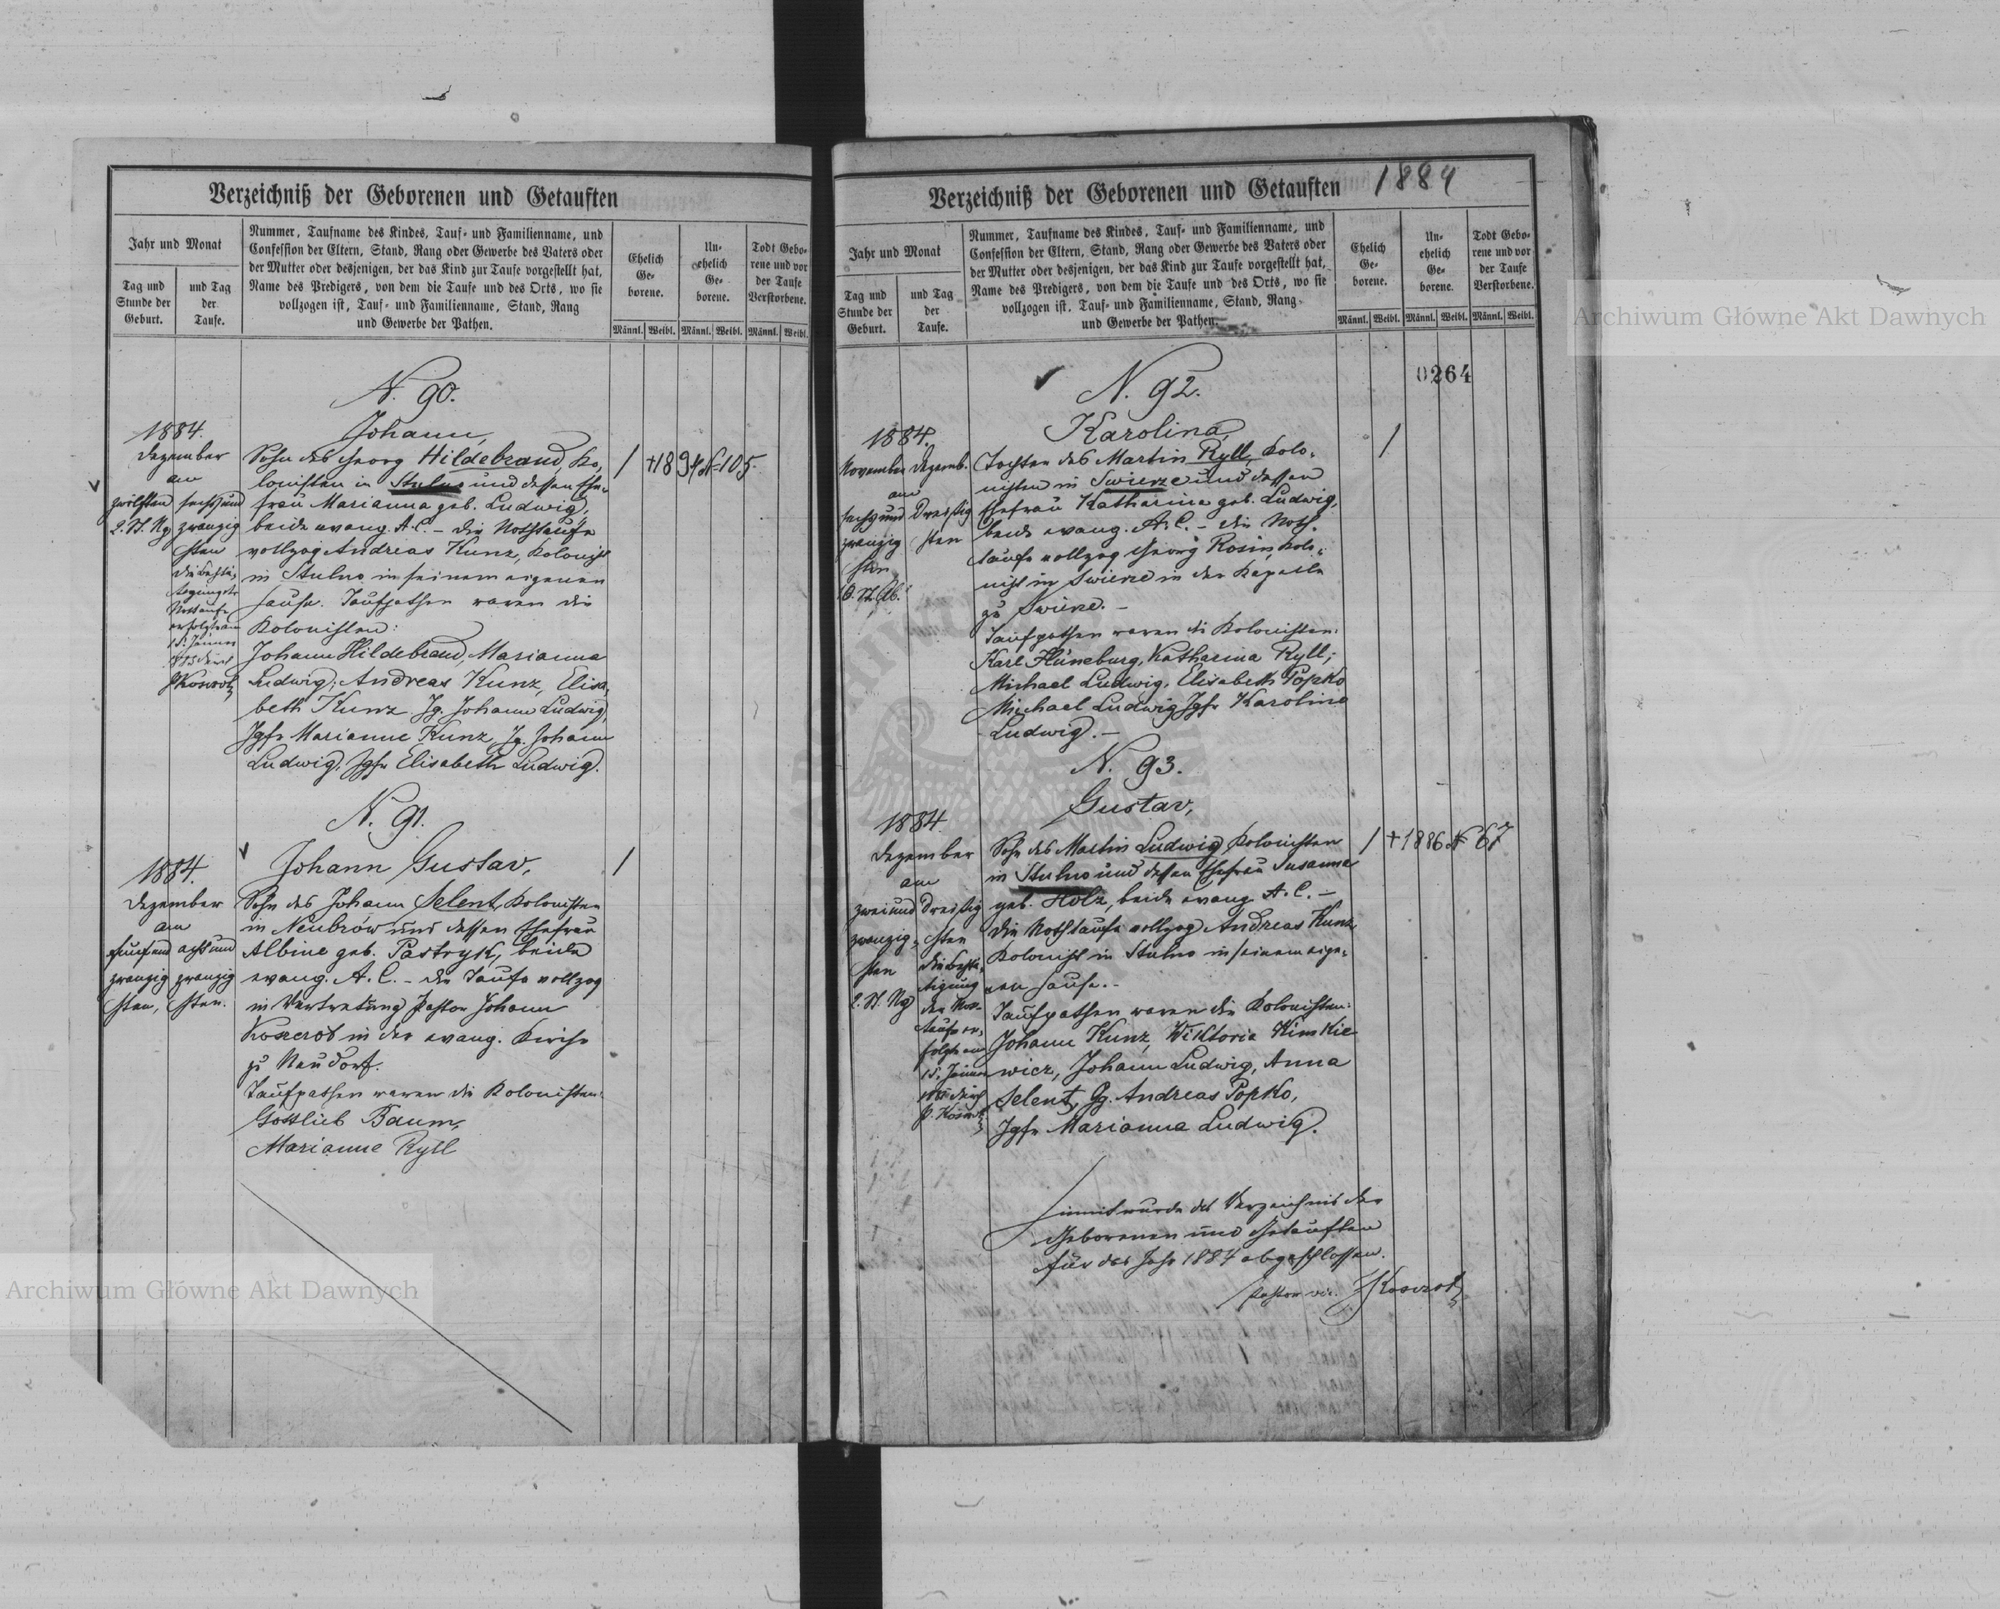 Verzeichniß der Geborenen und Getauften
Jahr und Monat
Tag und
Stunde der
Geburt.
und Tag
der
Taufe.
Nummer, Taufname des Kindes, Tauf- und Familienname, und
Confession der Eltern, Stand, Rang oder Gewerbe des Vaters oder
der Mutter oder desjenigen, der das Kind zur Taufe vorgestellt hat,
Name des Predigers, von dem die Taufe und des Orts, wo sie
vollzogen ist, Tauf- und Familienname, Stand, Rang
und Gewerbe der Pathen.
Ehelich
Ge-
borene.
Un-
ehelich
Ge-
borene.
Todt Gebo-
rene und vor
der Taufe
Verstorbene.
Männl. Weibl. Männl. Weibl. Männl. Weibl.
N. 90.
1884.
Dezember
am
zwölften
sechs und
zwanzig
sten
die Bestä-
tigung der
Nottaufe
erfolgte am
15. Jänner
Johann,
Sohn des Georg Hildebrand, Ko-
lonisten in Stulno und dessen Ehe-
frau Marianna geb. Ludwig,
beide evang. A. C. – die Nothtaufe
vollzog Andreas Kunz, Kolonist
in Stulno in seinem eigenen
Hause. Taufpathen waren die
Kolonisten:
Johann Hildebrand, Marianna
Ludwig; Andreas Kunz, Elisa-
beth Kunz. Jg. Johann Ludwig,
Jgfr Marianne Kunz, Jg. Johann
Ludwig, Jgfr Elisabeth Ludwig.
/ +1894 N 105.
N. 91.
1884.
Dezember
am
fünf und
zwanzig
sten,
acht und
zwanzig
sten.
Johann Gustav,
Sohn des Johann Selent, Kolonisten
in Neubrów und dessen Ehefrau
Albine geb. Pastryk, beide
evang. A. C. – die Taufe vollzog
in Vertretung Pastor Johann
Koserob in der evang. Kirche
zu Neudorf.
Taufpathen waren die Kolonisten:
Gottlieb Baum,
Marianne Ryll
/
Verzeichniß der Geborenen und Getauften 1884
Jahr und Monat
Tag und
Stunde der
Geburt.
und Tag
der
Taufe.
Nummer, Taufname des Kindes, Tauf- und Familienname, und
Confession der Eltern, Stand, Rang oder Gewerbe des Vaters oder
der Mutter oder desjenigen, der das Kind zur Taufe vorgestellt hat,
Name des Predigers, von dem die Taufe und des Orts, wo sie
vollzogen ist, Tauf- und Familienname, Stand, Rang
und Gewerbe der Pathen.
Ehelich
Ge-
borene.
Un-
ehelich
Ge-
borene.
Todt Gebo-
rene und vor
der Taufe
Verstorbene.
Männl. Weibl. Männl. Weibl. Männl. Weibl.
0264
N. 92.
1884.
November Dezemb.
am
sechs und
zwanzig
sten
Dreißig
sten
Karolina,
Tochter des Martin Ryll, Kolo-
nisten in Swierze und dessen
Ehefrau Katharine geb. Ludwig,
beide evang. A. C. – die Noth-
taufe vollzog Georg Rosin, Kolo-
nist in Swierze in der Kapelle
zu Swierze. –
Taufpathen waren die Kolonisten:
Karl Hüneburg, Katharina Ryll;
Michael Ludwig, Elisabeth Popko
Michael Ludwig Jgfr Karoline
Ludwig. –
/
N. 93.
1884.
Dezember
am
zwei und
zwanzig-
sten
Dreißig
sten
die Bestä-
tigung
der Not-
taufe er-
folgte am
15. Jänner
Gustav,
Sohn des Martin Ludwig Kolonisten
in Stulno und dessen Ehefrau Susanna
geb. Holz, beide evang. A. C. –
die Nothtaufe vollzog Andreas Kunz
Kolonist in Stulno in seinem eige-
nen Hause. –
Taufpathen waren die Kolonisten:
Johann Kunz, Wiktoria Kimkie
wicz, Johann Ludwig, Anna
Selent, Jg. Andreas Popko,
Jgfr Marianna Ludwig.
/ +1886 N 67
Hiemit wurde das Verzeichnis der
Geborenen und Getauften
für das Jahr 1884 abgeschlossen.
Pastor vic.
Archiwum Główne Akt Dawnych
Archiwum Główne Akt Dawnych